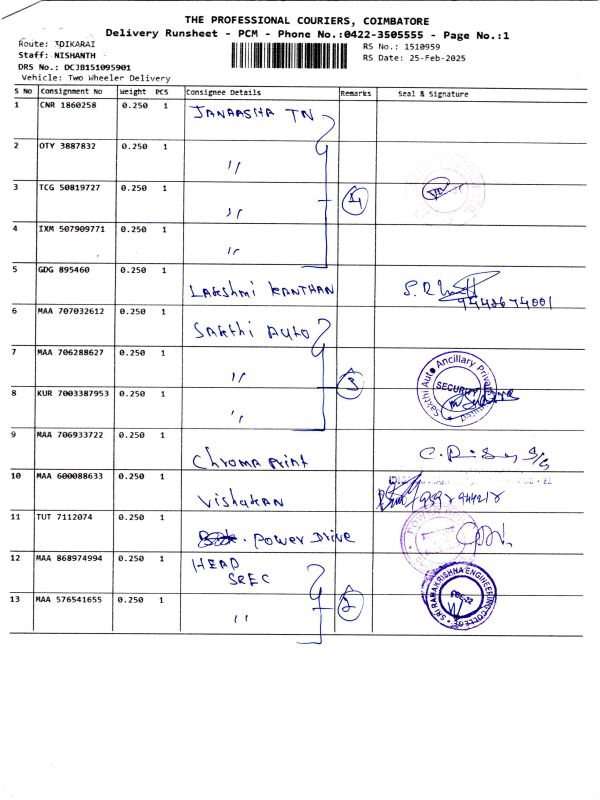 THE PROFESSIONAL COURIERS, COIMBATORE
Delivery Runsheet - PCM - Phone No.:0422-3505555 - Page No.:1
Route: IDIKARAI
RS No.: 1510959
Staff: NISHANTH
RS Date: 25-Feb-2025
DRS No.: DCJB151095901
Vehicle: Two Wheeler Delivery
S No Consignment No Weight PCS Consignee Details Remarks Seal & Signature
1 CNR 1860258 0.250 1 JANAASHA TN
2 OTY 3887832 0.250 1 "
3 TCG 50819727 0.250 1 " 4
4 IXM 507909771 0.250 1 "
5 GDG 895460 0.250 1 LAKSHMI KANTHAN
6 MAA 707032612 0.250 1 SAKTHI AUTO
7 MAA 706288627 0.250 1 " 3 Sakthi Auto Ancillary Private Limited SECURITY
8 KUR 7003387953 0.250 1 "
9 MAA 706933722 0.250 1 Chroma print
10 MAA 600088633 0.250 1 Vishakan
11 TUT 7112074 0.250 1 . POWER Drive
12 MAA 868974994 0.250 1 HEAD
SREC
13 MAA 576541655 0.250 1 " 2 SRI RAMAKRISHNA ENGINEERING COLLEGE